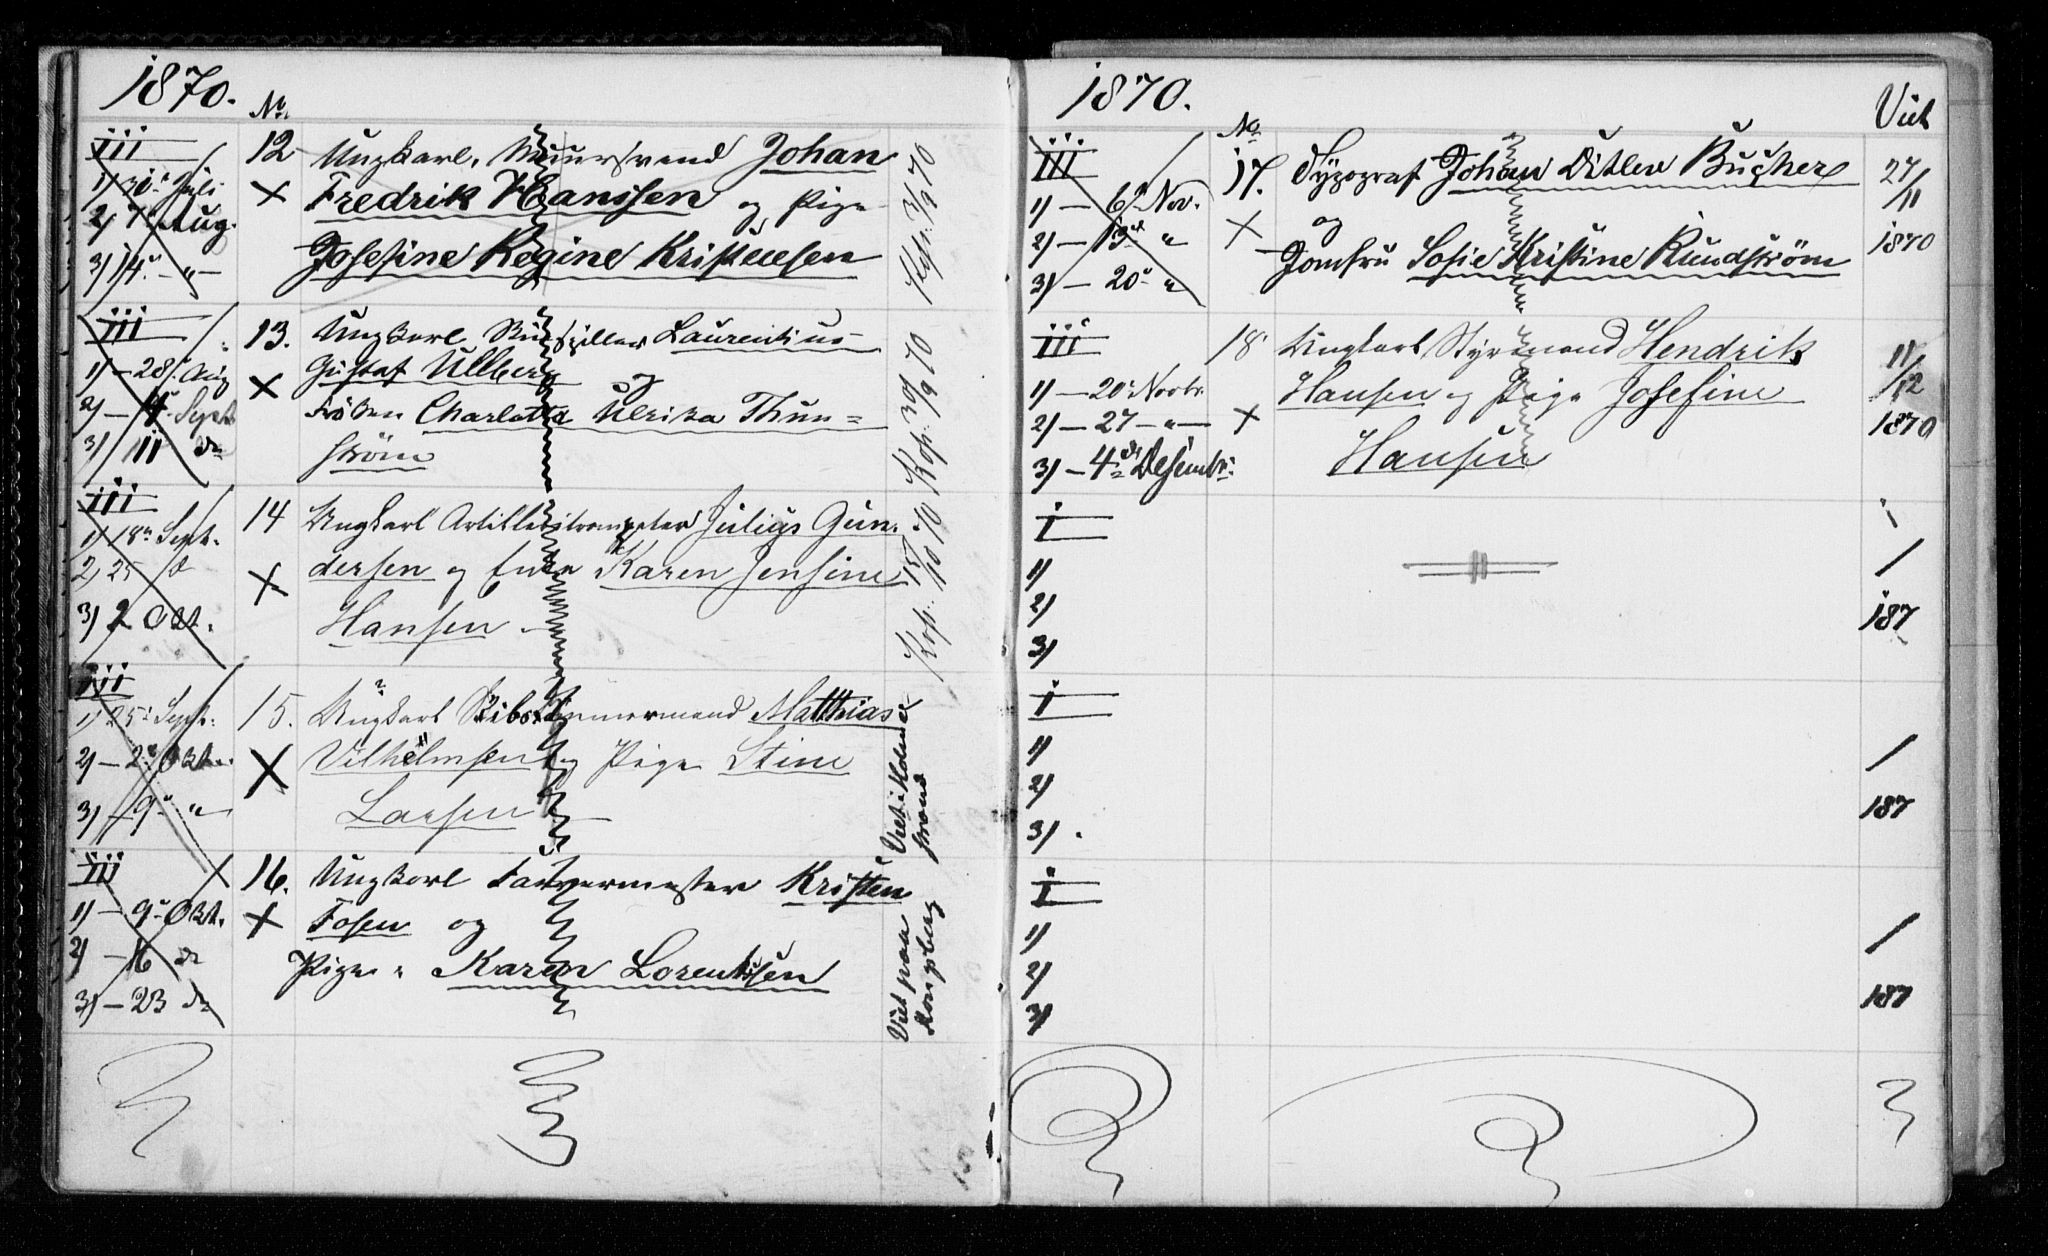 1870.
No
iii
1) 31 Juli
2) 7 Aug.
3) 14 - " -
12
Ungkarl, Muursvend Johan
Fredrik Hanssen og Pige
Josefine Regine Kristensen
iii
1) - 28 Aug
2) - 4 Sept
3) 11 do
13.
Ungkarl Laurentius
Gustaf Ullberg og
Frøken Charlotta Ulrika Thun=
strøm
Kop. 30/9 70
iii
1) 18 Sept.
2) 25 d
3) 2 Okt.
14
Ungkarl Artilleritrompeter Julius Gun-
dersen og Enke Karen Jensine
Hansen -
Kop. 10 70
iii
1) 25 Sept.
2) - 2 Okt.
3) - 9 - "
15.
Ungkarl Skibstømmermand Matthias
Vilhelmsen og Pige Stine
Larsen
Viet i Holmestrand
iii
1) - 9 Okt.
2) - 16 do
3) - 23 do
16.
Ungkarl Farvermester Kristen
Fosen og
Pige " Karen Lorentsen
Viet paa
Kongsberg
1870.
No
Viet
iii
1) - 6 Nov.
2) - 13 "
3) - 20 "
17.
Typograf Johan Ditlev Bucher
og
Jomfru Sofie Kristine Rundstrøm
27/11
1870
iii
1) - 20 Novbr.
2) - 27 - " -
3) - 4 Desembr.
18
Ungkarl Styrmand Hendrik
Hansen og Pige Josefine
Hansen
11/12
1870
i
1)
2)
3)
/
187
i
1)
2)
3)
/
187
i
1)
2)
3)
/
187